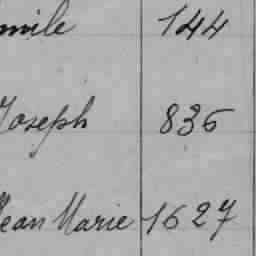 mile 144
Joseph 836
Jean Marie 1627